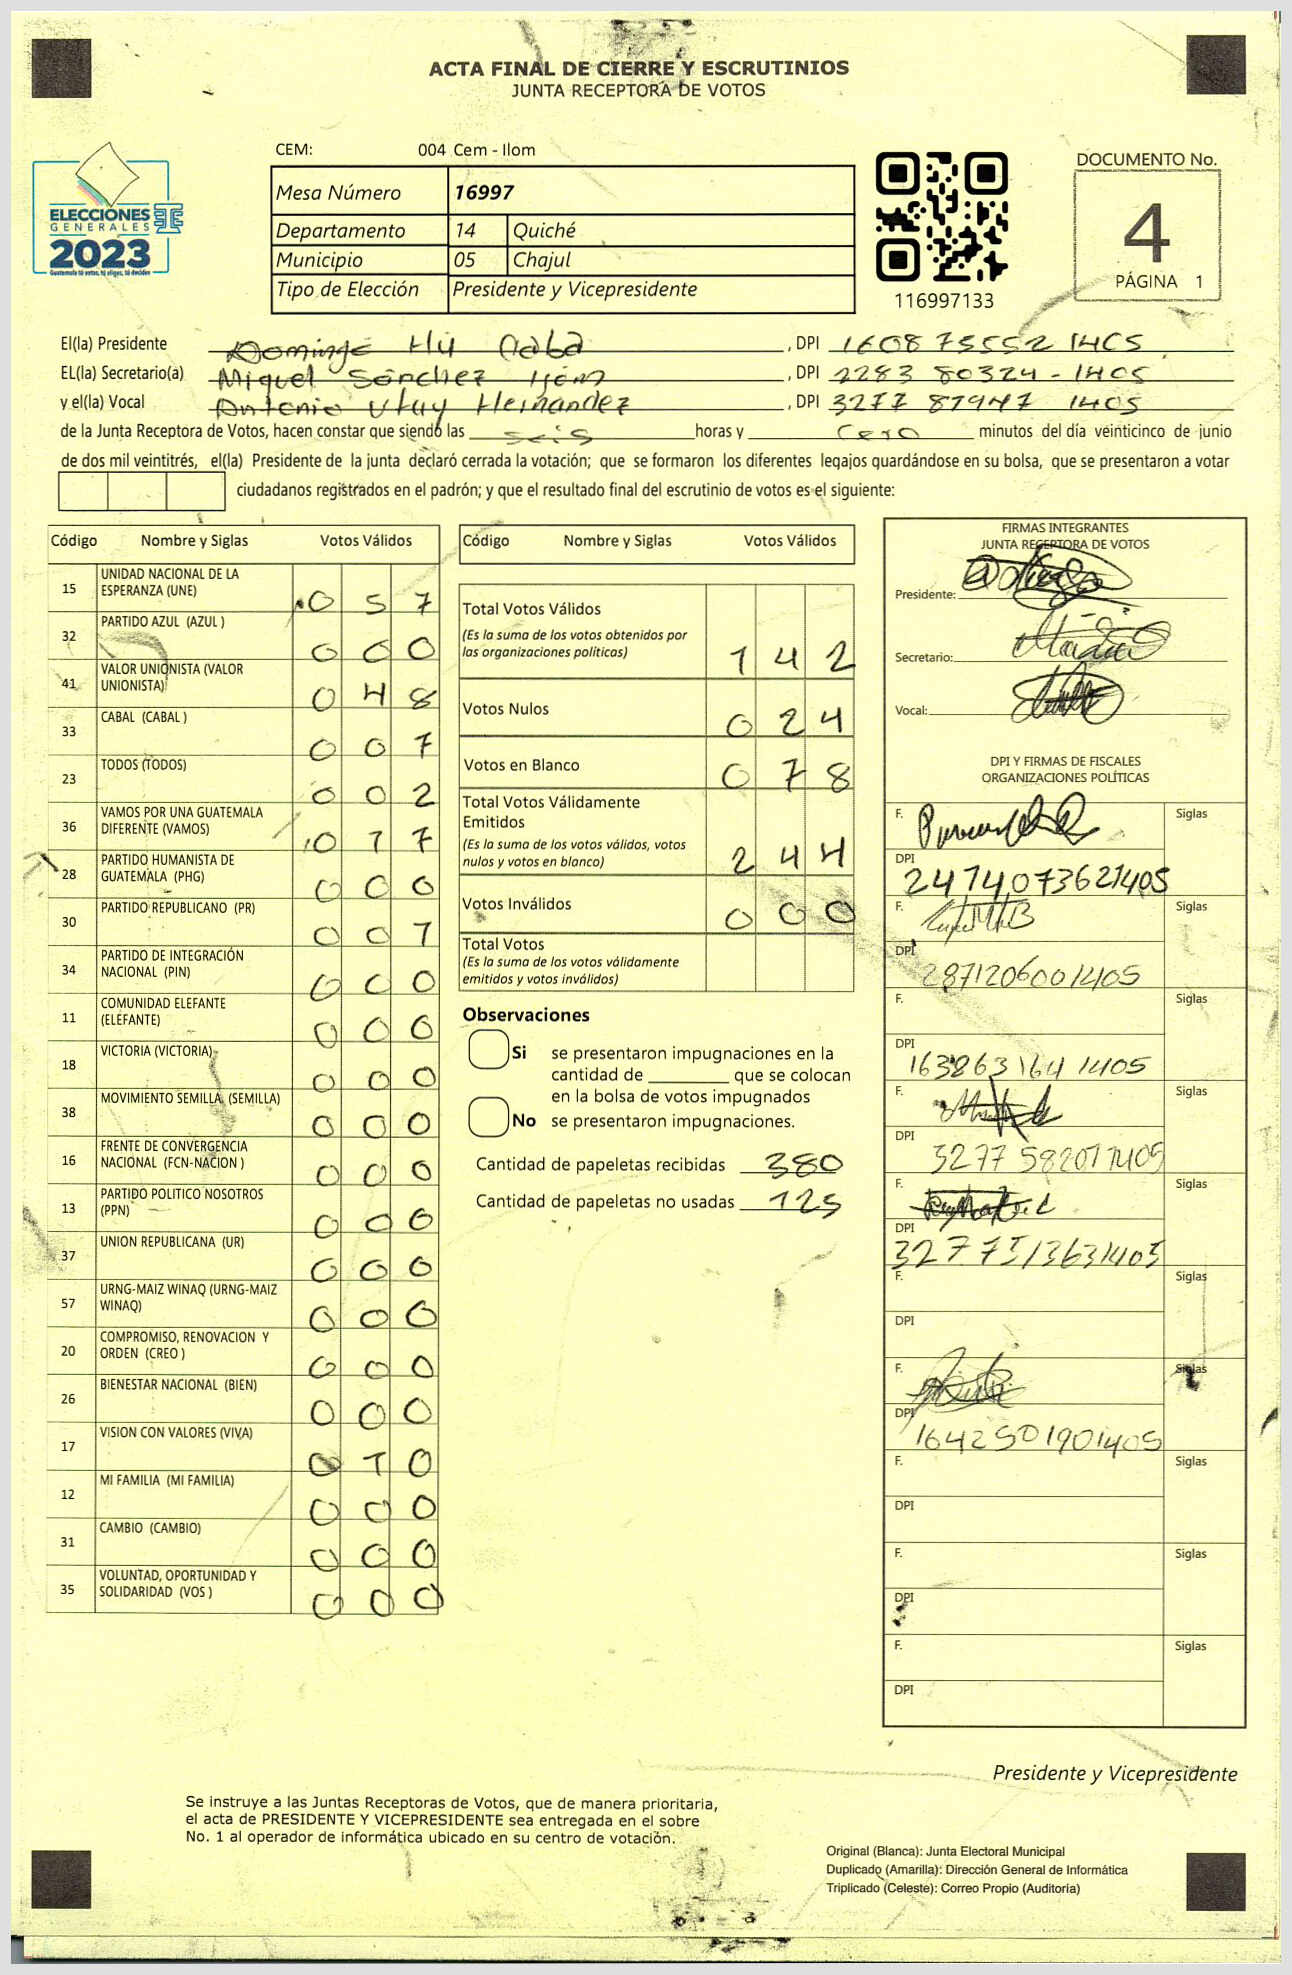 ACTA FINAL DE CIERRE Y ESCRUTINIOS
JUNTA RECEPTORA DE VOTOS
CEM: 004 Cem - Ilom
ELECCIONES
GENERALES
2023
Guatemala tú votas, tú eliges, tú decides
Mesa Número 16997
Departamento 14 Quiché
Municipio 05 Chajul
Tipo de Elección Presidente y Vicepresidente
116997133
DOCUMENTO No.
4
PÁGINA 1
El(la) Presidente Domingo Hú Caba, DPI 1608 75552 1405
EL(la) Secretario(a) Miguel Sánchez, DPI 2283 80324 - 1405
y el(la) Vocal Antonio Utuy Hernández, DPI 3277 87947 1405
de la Junta Receptora de Votos, hacen constar que siendo las seis horas y cero minutos del día veinticinco de junio
de dos mil veintitrés, el(la) Presidente de la junta declaró cerrada la votación; que se formaron los diferentes legajos guardándose en su bolsa, que se presentaron a votar
ciudadanos registrados en el padrón; y que el resultado final del escrutinio de votos es el siguiente:
Código Nombre y Siglas Votos Válidos
15 UNIDAD NACIONAL DE LA
ESPERANZA (UNE) 0 5 7
32 PARTIDO AZUL (AZUL ) 0 0 0
41 VALOR UNIONISTA (VALOR
UNIONISTA) 0 4 8
33 CABAL (CABAL ) 0 0 7
23 TODOS (TODOS) 0 0 2
36 VAMOS POR UNA GUATEMALA
DIFERENTE (VAMOS) 0 1 7
28 PARTIDO HUMANISTA DE
GUATEMALA (PHG) 0 0 0
30 PARTIDO REPUBLICANO (PR) 0 0 1
34 PARTIDO DE INTEGRACIÓN
NACIONAL (PIN) 0 0 0
11 COMUNIDAD ELEFANTE
(ELEFANTE) 0 0 0
18 VICTORIA (VICTORIA) 0 0 0
38 MOVIMIENTO SEMILLA (SEMILLA) 0 0 0
16 FRENTE DE CONVERGENCIA
NACIONAL (FCN-NACION ) 0 0 0
13 PARTIDO POLITICO NOSOTROS
(PPN) 0 0 0
37 UNION REPUBLICANA (UR) 0 0 0
57 URNG-MAIZ WINAQ (URNG-MAIZ
WINAQ) 0 0 0
20 COMPROMISO, RENOVACION Y
ORDEN (CREO ) 0 0 0
26 BIENESTAR NACIONAL (BIEN) 0 0 0
17 VISION CON VALORES (VIVA) 0 1 0
12 MI FAMILIA (MI FAMILIA) 0 0 0
31 CAMBIO (CAMBIO) 0 0 0
35 VOLUNTAD, OPORTUNIDAD Y
SOLIDARIDAD (VOS ) 0 0 0
Código Nombre y Siglas Votos Válidos
Total Votos Válidos
(Es la suma de los votos obtenidos por
las organizaciones politicas) 1 4 2
Votos Nulos 0 2 4
Votos en Blanco 0 7 8
Total Votos Válidamente
Emitidos
(Es la suma de los votos válidos, votos
nulos y votos en blanco) 2 4 4
Votos Inválidos 0 0 0
Total Votos
(Es la suma de los votos válidamente
emitidos y votos inválidos)
Observaciones
Si se presentaron impugnaciones en la
cantidad de ________ que se colocan
en la bolsa de votos impugnados
No se presentaron impugnaciones.
Cantidad de papeletas recibidas 380
Cantidad de papeletas no usadas 125
FIRMAS INTEGRANTES
JUNTA RECEPTORA DE VOTOS
Presidente:
Secretario:
Vocal:
DPI Y FIRMAS DE FISCALES
ORGANIZACIONES POLÍTICAS
F. Siglas
DPI 2474073621405
F. Siglas
DPI 2871206001405
F. Siglas
DPI 163863164 1405
F. Siglas
DPI 3277 582071405
F. Siglas
DPI 3277513631405
F. Siglas
DPI
F. Siglas
DPI 1642501901405
F. Siglas
DPI
F. Siglas
DPI
F. Siglas
DPI
Presidente y Vicepresidente
Se instruye a las Juntas Receptoras de Votos, que de manera prioritaria,
el acta de PRESIDENTE Y VICEPRESIDENTE sea entregada en el sobre
No. 1 al operador de informática ubicado en su centro de votación.
Original (Blanca): Junta Electoral Municipal
Duplicado (Amarilla): Dirección General de Informática
Triplicado (Celeste): Correo Propio (Auditoría)